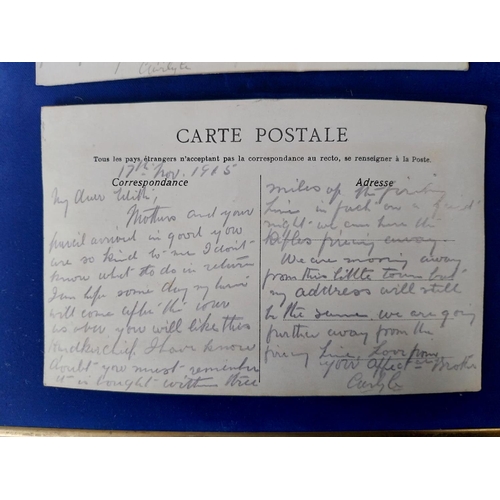 Carlyle
CARTE POSTALE
Tous les pays étrangers n'acceptant pas la correspondance au recto, se renseigner à la Poste.
17th Nov. 1915
Correspondance
My Dear Edith,
Mothers and your
parcel arrived in good you
are so kind to me I don't
know what to do in return
I can hope some day my turn
will come after the war
is over you will like this
handkerchief. I have know
doubt you must remember
it is bought with three
Adresse
miles of the firing
line in fact on a
night we can here the
Rifles firing away
We are moving away
from this little town but
my address will still
be the same we are going
further away from the
firing line. Love from
your affect Brother
Carlyle